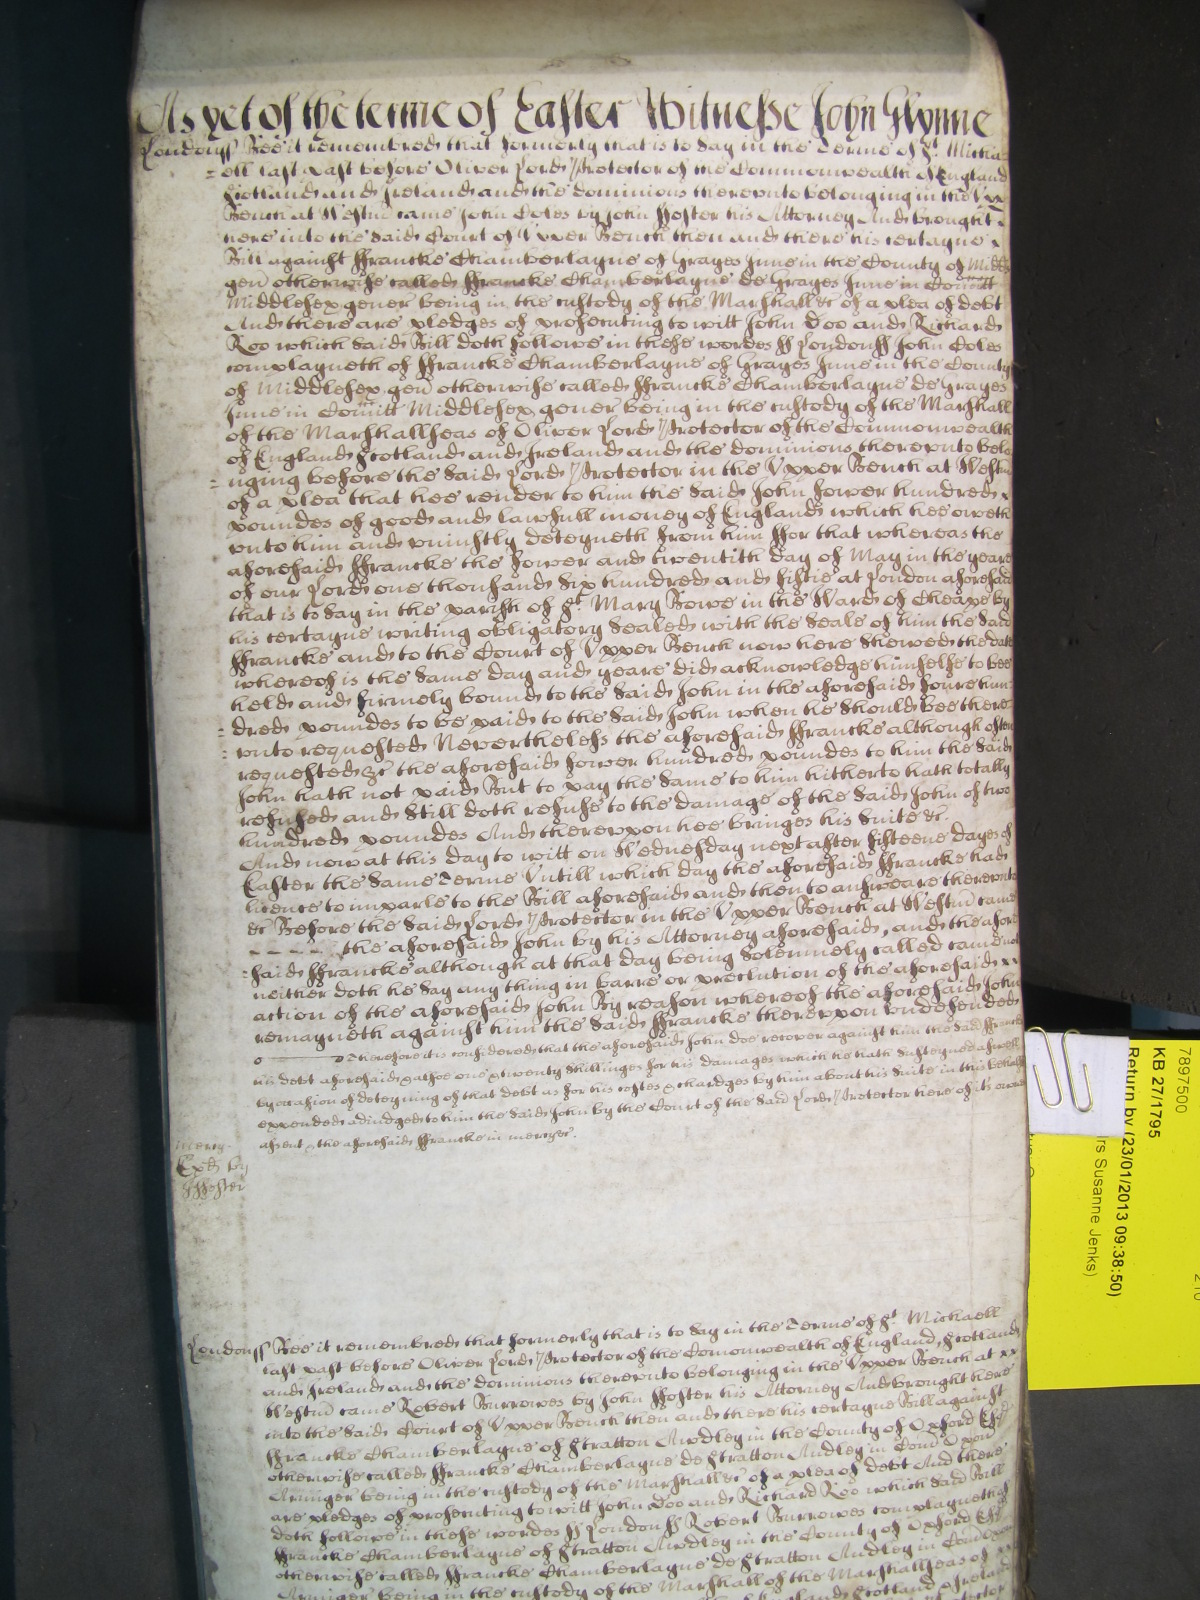 As yet of the terme of Easter Witnesse John Glynne
Londonss Bee it remembred that formerly that is to say in the Terme of St Micha
=ell last past before Oliver Lord Protector of the Commonwealth of England
Scotland and Ireland and the dominions thereunto belonging in the Upp
Bench at Westm came John Coles by John Foster his Attorney And brought
here into the said Court of Upper Bench then and there his certayne x
Bill against ffrancke Chamberlayne of Grayes Inne in the County of Midd
gen otherwise called ffrancke Chamberlayne de Grayes Inne in Comitt
Middlesex gener being in the custody of the Marshall &c of a plea of debt
And there are pledges of prosecuting to witt John Doo and Richard
Roo which said Bill doth followe in these wordes ss Londonss John Coles
complayneth of ffrancke Chamberlayne of Grayes Inne in the County
of Middlesex gen otherwise called ffrancke Chamberlayne de Grayes
Inne in Comitt Middlesex gener being in the custody of the Marshall
of the Marshallseas of Oliver Lord Protector of the Commonwealth
of England Scotland and Ireland and the dominions thereunto belo
=nging before the said Lord Protector in the Upper Bench at Westm
of a plea that hee render to him the said John fower hundred x
poundes of good and lawfull money of England which hee oweth
vnto him and vniustly deteyneth from him ffor that whereas the
aforesaid ffrancke the fower and twentith day of May in the yeare
of our Lord one thousand six hundred and fiftie at London aforesaid
that is to say in the parish of St Mary Bowe in the Ward of Cheape by
his certayne writing obligatory sealed with the seale of him the said
ffrancke and to the Court of Upper Bench now here shewed the date
whereof is the same day and yeare did acknowledge himselfe to bee
held and firmely bound to the said John in the aforesaid foure hun=
=dred poundes to be paid to the said John when he should bee there
=vnto requested Neverthelesse the aforesaid ffrancke although often
requested &c the aforesaid fower hundred poundes to him the said
John hath not paid But to pay the same to him hitherto hath totally
refused and still doth refuse to the damage of the said John of two
hundred poundes And thereuppon hee bringes his suite &c.
And now at this day to witt on Wednesday next after fifteene dayes of
Easter the same Terme Untill which day the aforesaid ffrancke had
licence to imparle to the Bill aforesaid and then to answeare thereunto
&c Before the said Lord Protector in the Upper Bench at Westm came
- - - - the aforesaid John by his Attorney aforesaid, and the afore
=said ffrancke although at that day being solemnely called came not
neither doth he say any thing in barre or preclution of the aforesaid xx
action of the aforesaid John By reason whereof the aforesaid John
remayneth against him the said ffrancke thereuppon undefended
Therefore it is considered that the aforesaid John doe recover against him the said ffrancke
his debt aforesaid & alsoe one & twenty shillinges for his damages which he hath susteyned aswell
by occasion of deteyning of that debt as for his costes & chardges by him about his suite in this behalfe
expended adiudged to him the said John by the Court of the said Lord Protector here of his owne
assent & the aforesaid ffrancke in mercy &c.
mercy
Exd by
Foster
Londonss Bee it remembred that formerly that is to say in the Terme of St Michaell
last past before Oliver Lord Protector of the Comonwealth of England, Scotland
and Ireland and the dominions thereunto belonging in the Upper Bench at xx
Westm came Robert Burrowes by John Foster his Attorney And brought here
into the said Court of Upper Bench then and there his certayne Bill against
ffrancke Chamberlayne of Stratton Awdley in the County of Oxford Esqr
otherwise called ffrancke Chamberlayne de Stratton Audley in Com Oxon
Armiger being in the custody of the Marshall &c of a plea of debt And there
are pledges of prosecuting to witt John Doo and Richard Roo which said Bill
doth followe in these wordes ss Londonss Robert Burrowes complayneth of
ffrancke Chamberlayne of Stratton Awdley in the County of Oxford Esqr
otherwise called ffrancke Chamberlayne de Stratton Audley in Com Oxon
Armiger being in the custody of the Marshall of the Marshallseas of
England Scotland & Ireland
7897500
KB 27/1795
Return by (23/01/2013 09:38:50)
rs Susanne Jenks)